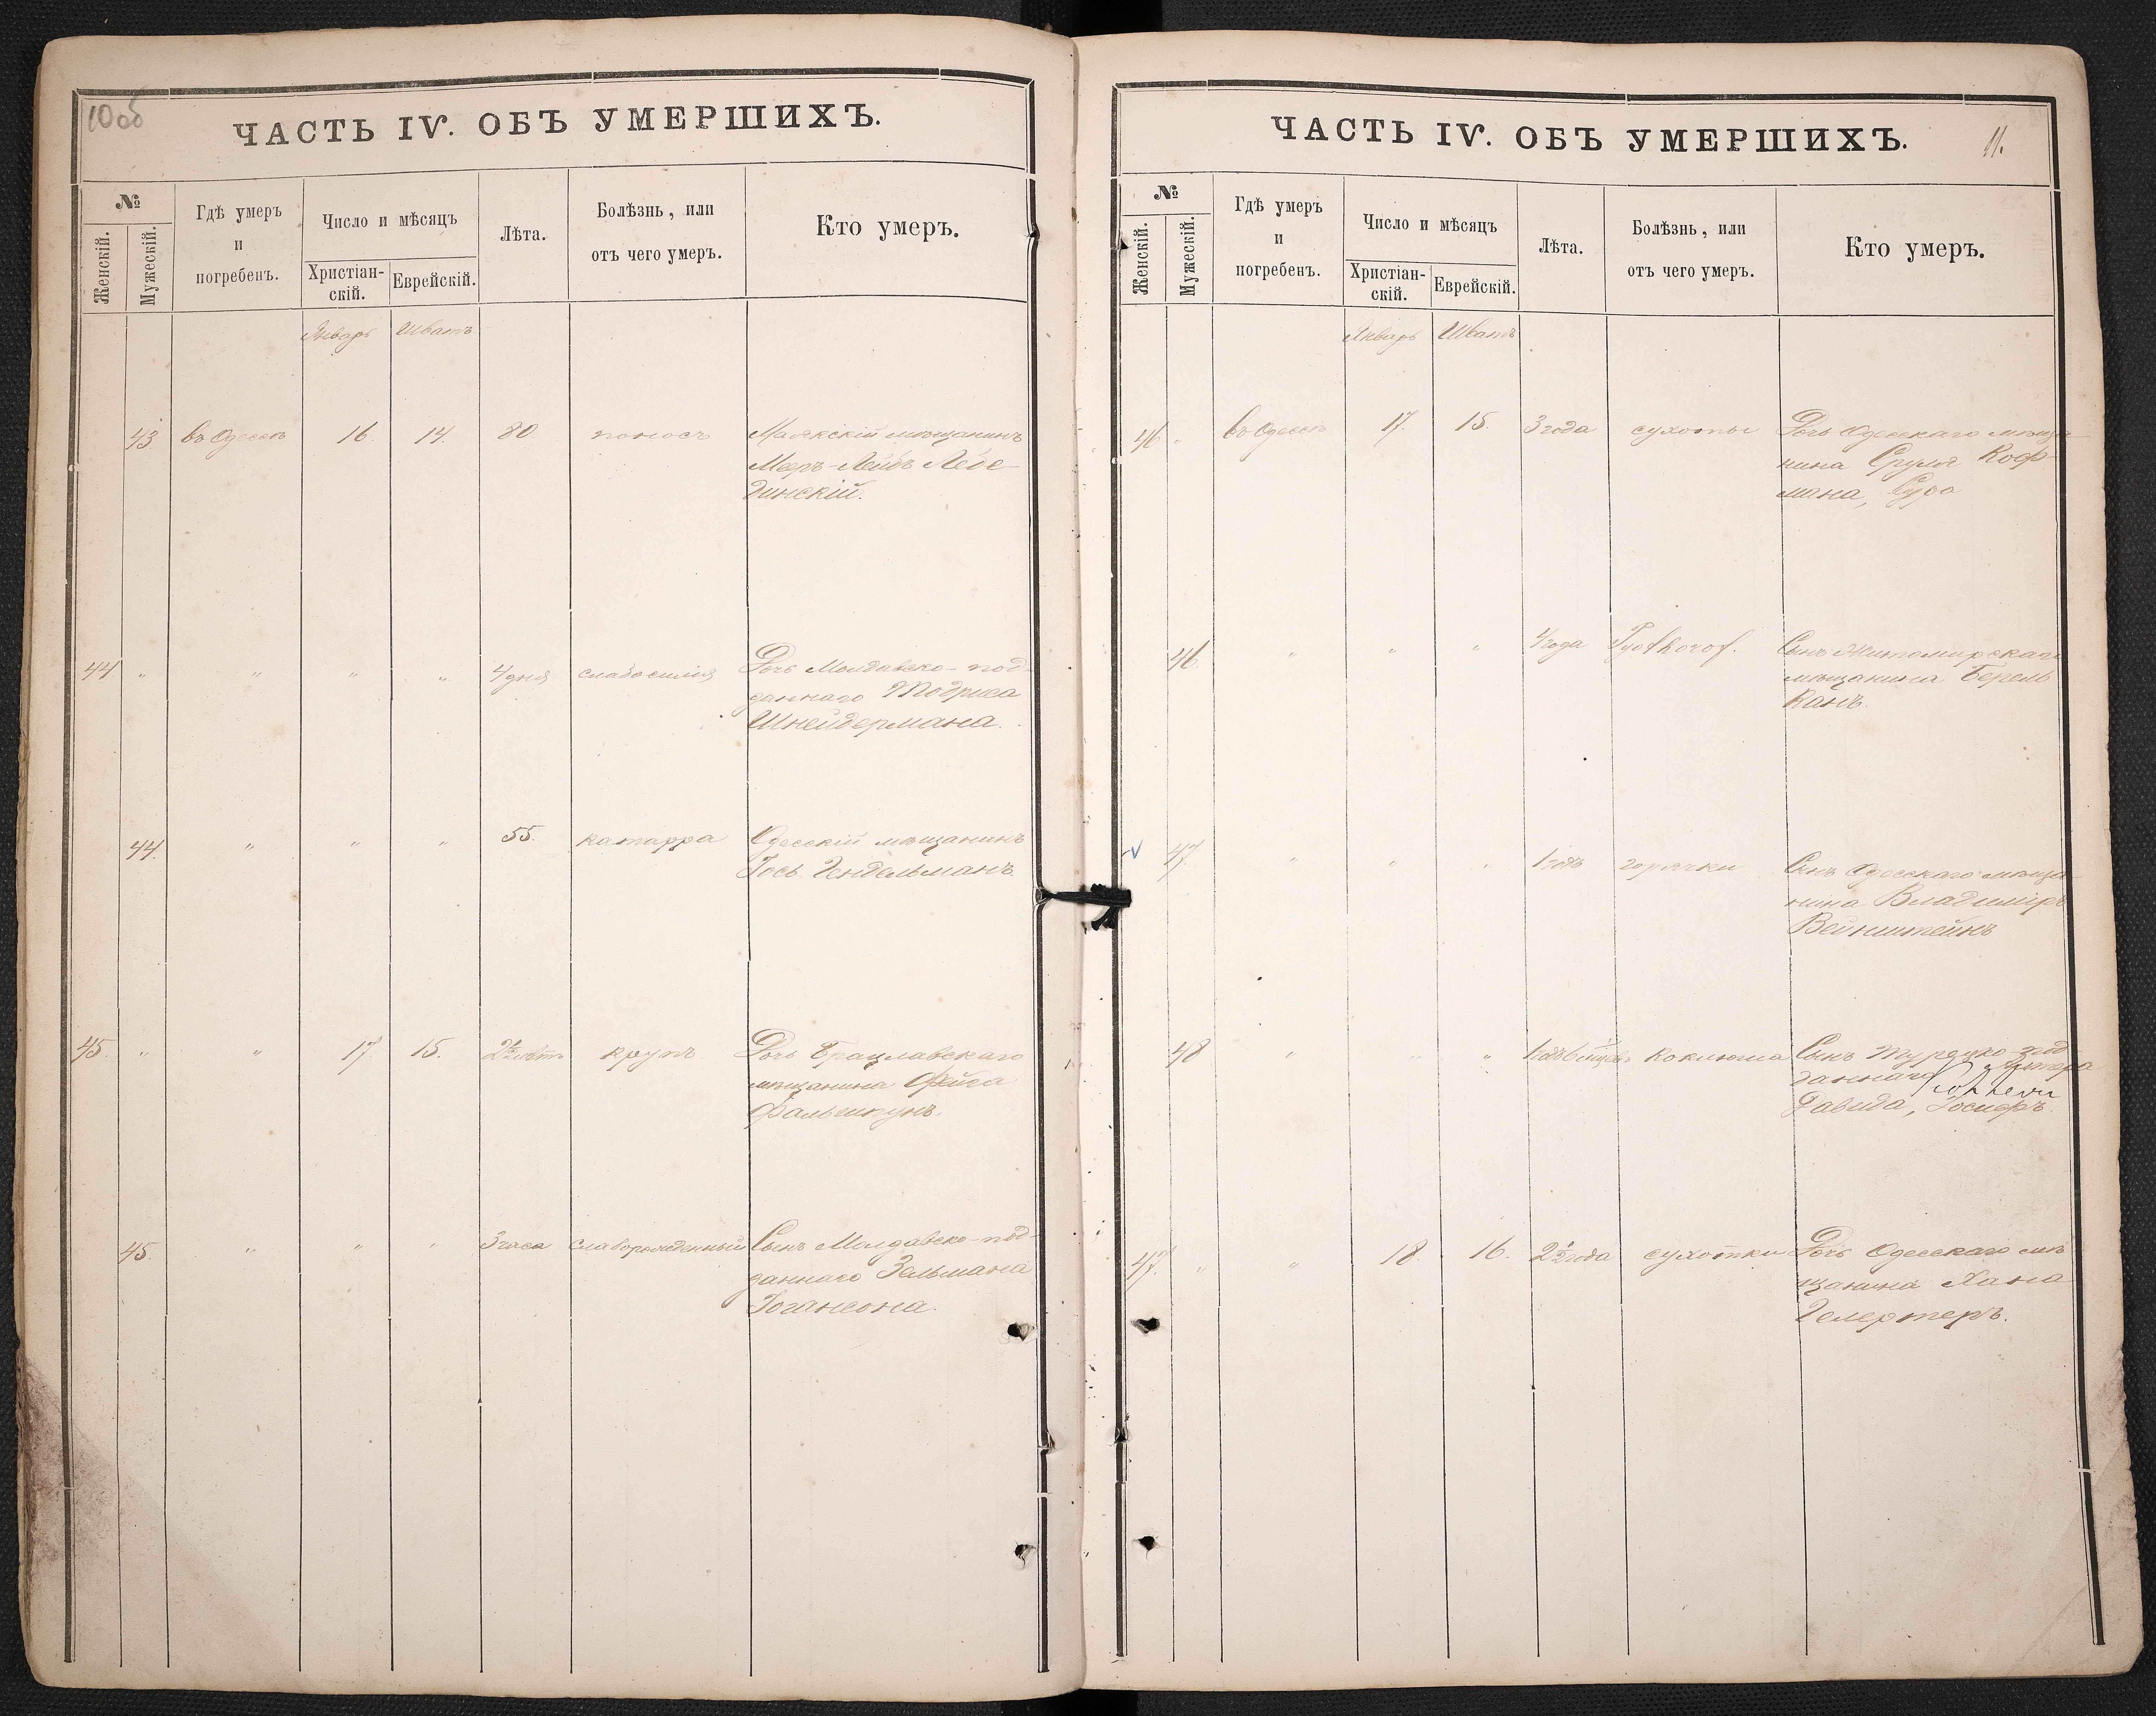 10об
ЧАСТЬ IV. ОБЪ УМЕРШИХЪ.
№
Женскій.
Мужескій.
Гдѣ умеръ
и
погребенъ.
Число и мѣсяцъ
Христіан-
скій.
Еврейскій.
Лѣта.
Болѣзнь, или
отъ чего умеръ.
Кто умеръ.
Январь Шватъ
43 въ Одессѣ 16 14. 80 поносъ Маякскій мѣщанинъ
Меръ-Лейбъ Лебе-
динскій.
44 " " " " 4 дня слабосилія Дочь Молдавско-под-
даннаго Тодриса
Шнейдермана.
44. " " " 55. катарра Одесскій мѣщанинъ
Іось Гендельманъ
45. " " 17 15. 2½ лѣтъ крупъ Дочь Брацлавскаго
мѣщанина Фейга
45. " " " 3 часа слаборожденный Сынъ Молдавско-под-
даннаго Зельмана
Іогансона.
ЧАСТЬ IV. ОБЪ УМЕРШИХЪ.
11.
№
Женскій.
Мужескій.
Гдѣ умеръ
и
погребенъ.
Число и мѣсяцъ
Христіан-
скій.
Еврейскій.
Лѣта.
Болѣзнь, или
отъ чего умеръ.
Кто умеръ.
Январь Шватъ
46 " въ Одессѣ 17. 15. 3 года сухоты Дочь Одесскаго мѣща-
нина Сруля Коф-
мана, Сура
46 " " " 4 года Сынъ Житомирскаго
мѣщанина Берель
Канъ.
47. " " " 1 годъ горячки Сынъ Одесскаго мѣща-
нина Владиміръ
Вейнштейнъ
48 " " " 1 годъ 6 мѣсяц. коклюша Сынъ Турецко-под-
даннаго
Давида, Іосифъ.
47. " " 18. 16. 2½ года сухотки Дочь Одесскаго мѣ-
щанина Хана
Гелертеръ.